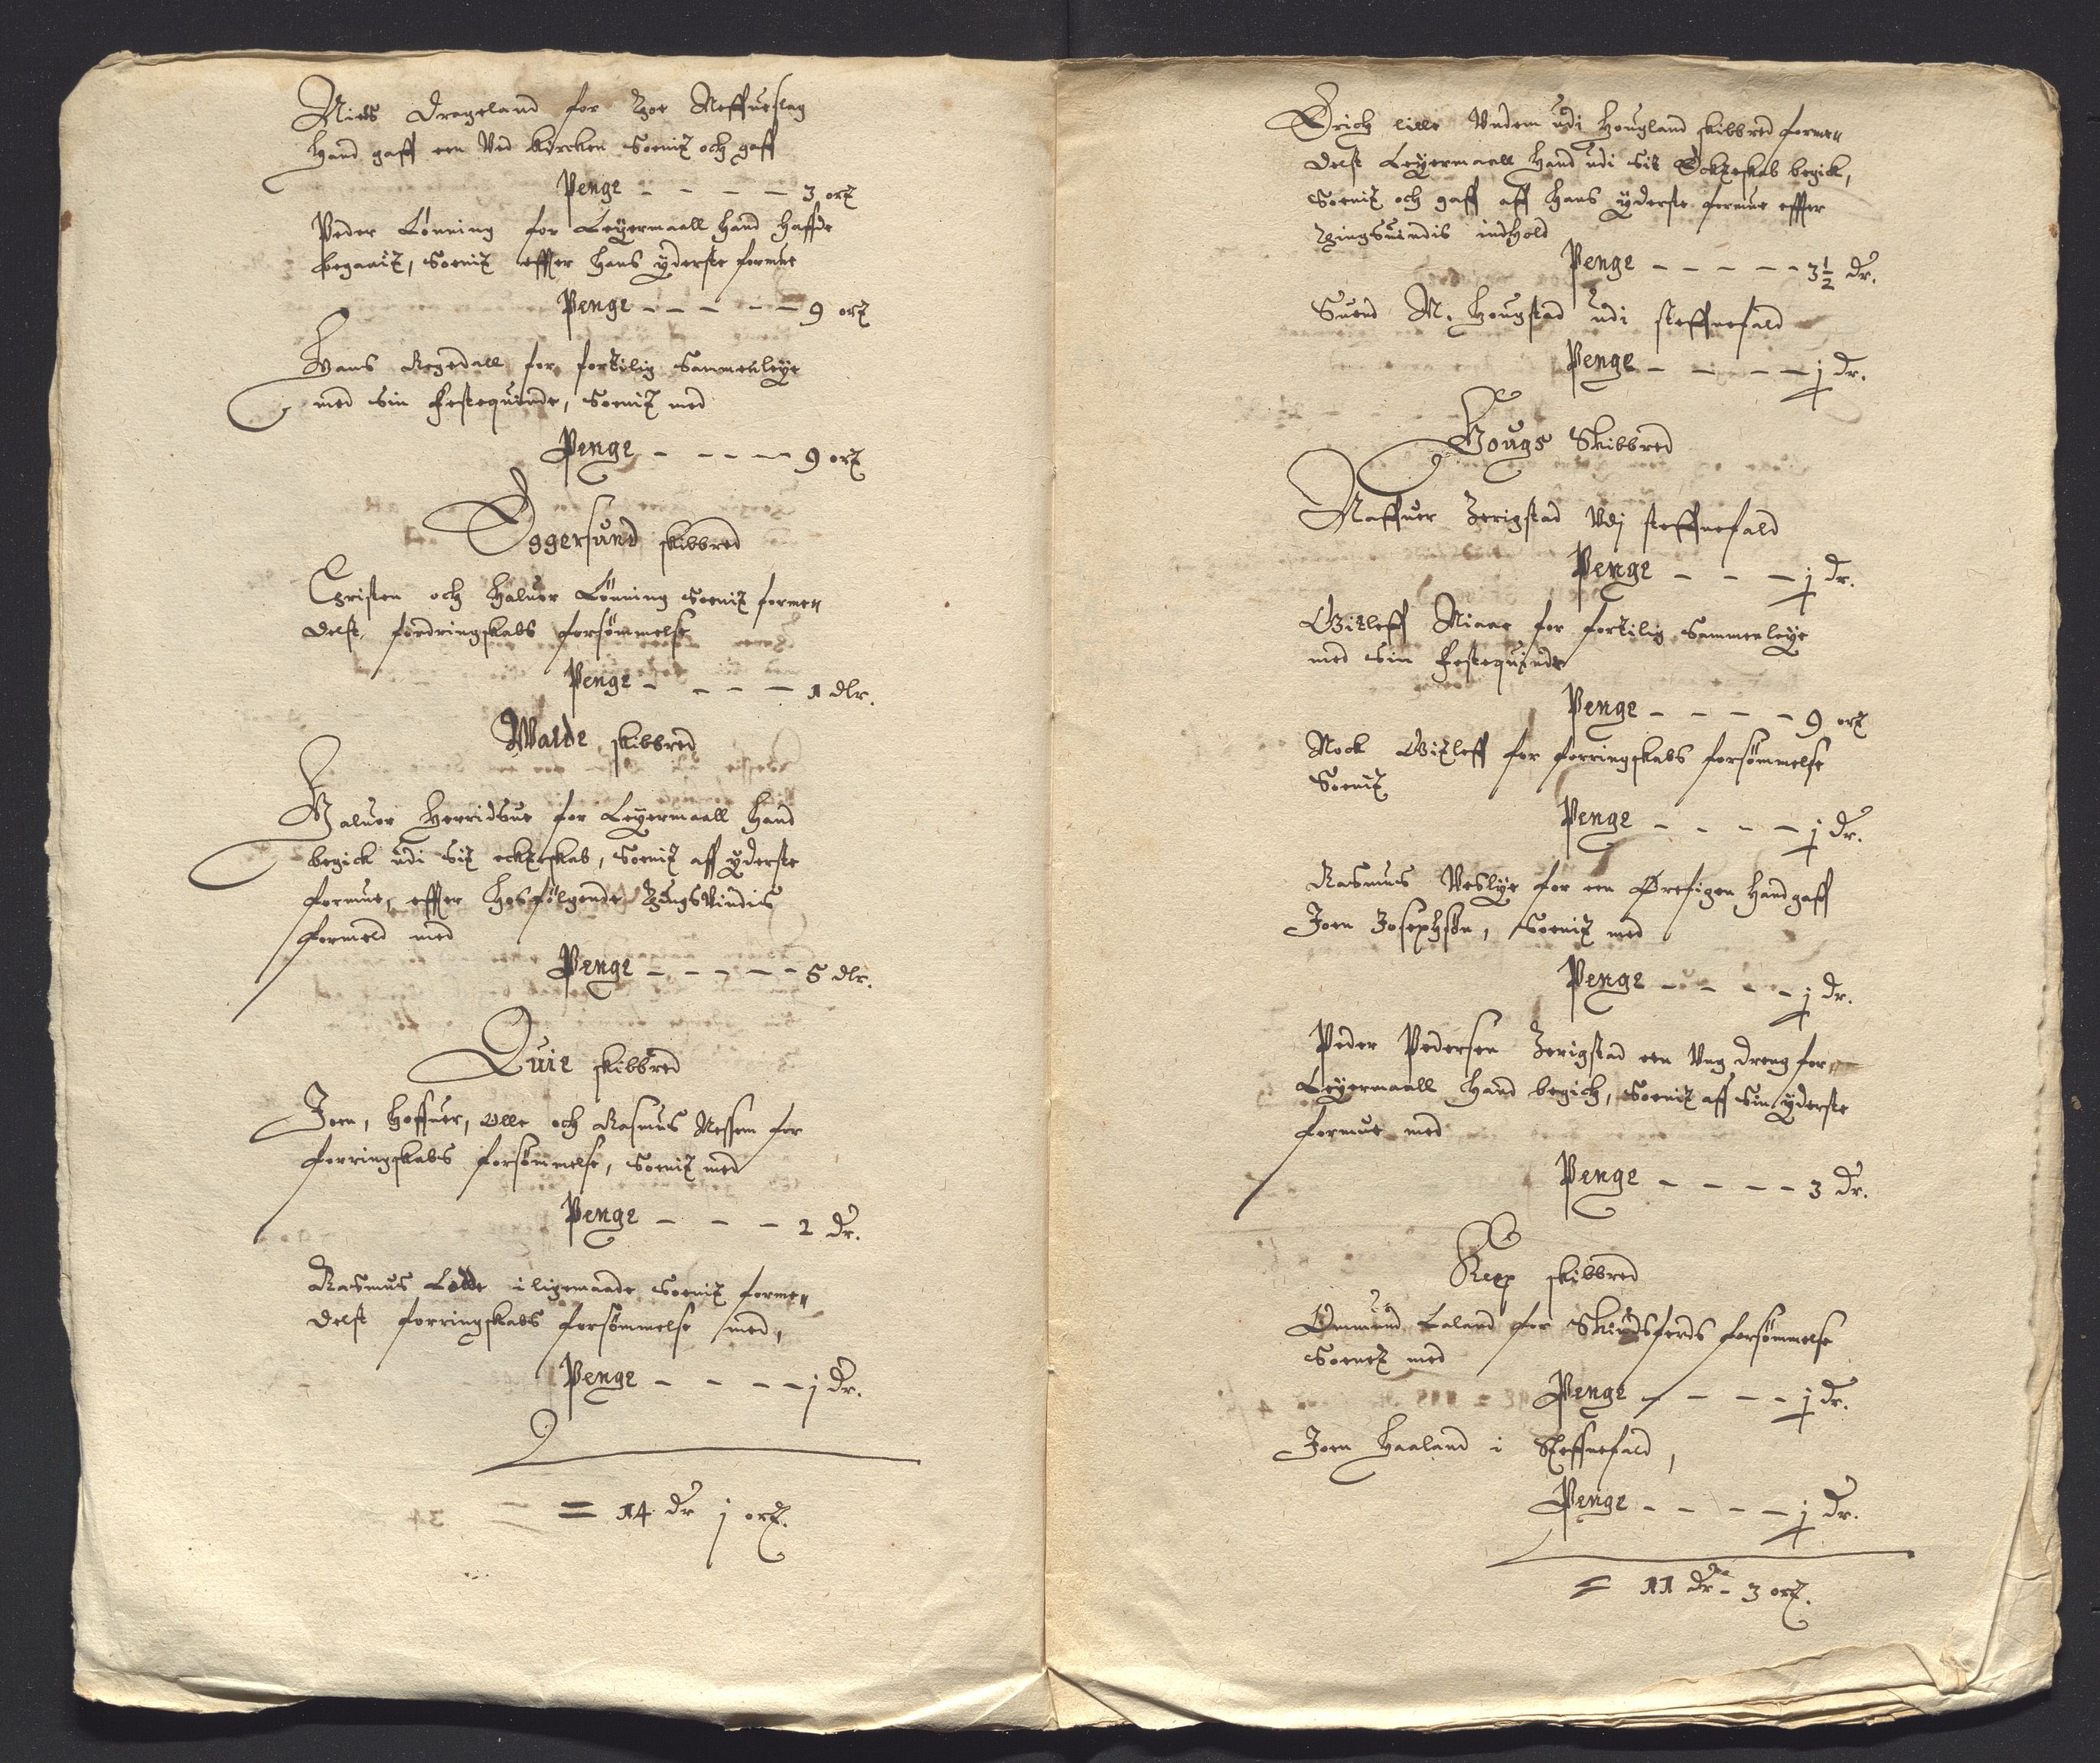 Niels Drageland for Thoe Neffueslag
hand gaff een Ved kircken Soenit och gaff
Penge - - - - 3 ort
Peder Lønning for Leyermaall hand haffde
begaait, Soenit effter hans yderste formue
Penge - - - - - 9 ort
Hans Regedall for fortilig Sammenleye
med sin festequinde, Soenit med
Penge - - - - 9 ort
Eggersund skibbred
Christen och Haluor Lønning Soenit formen
delst fordringskabs forsømmelse
Penge - - - - 1 dlr.
Walde skibbred
Haluor Herridsue for Leyermaall hand
begick udi sit ecktskab, Soenit aff yderste
formue, effter hosfølgende Tingsvindis
formeld med
Penge - - - - - 5 dlr.
Quie skibbred
Joen, Hoffuer, Olle och Rasmus Nessem for
forringskabs forsømmelse, Soenit med
Penge - - - 2 dr.
Rasmus Lode iligemaade Soenit formen
delst forringskabs forsømmelse med,
Penge - - - - j dr.
= 14 dr j ort.
Erich lille Undem udi Hougland skibbred formen
delst Leyermaall hand udi sit Eckteskab begick,
Soenit och gaff aff hans yderste formue effter
Tingsuindis indhold
Penge - - - - - 3½ dr.
Suend N. Hougstad udi steffnefald
Penge - - - - j dr.
Hougs Skibbred
Naffuer Zerigstad Udj steffnefald
Penge - - - j dr.
Gitleff Miaae for fortilig Sammenleye
med sin festequinde
Penge - - - - 9 ort
Nock Gitleff for forringskabs forsømmelse
Soenit
Penge - - - - j dr.
Rasmus Veslye for een Ørefigen hand gaff
Joen Josephsøn, Soenit med
Penge - - - - j dr.
Peder Pedersen Zerigstad een Ung dreng for
Leyermaall hand begick, Soenit aff sin yderste
formue med
Penge - - - - 3 dr.
Kep skibbred
Omund Laland for Skiudsferds forsømmelse
Soenet med
Penge - - - - j dr.
Joen Haaland i Steffnefald,
Penge - - - - j dr.
= 11 dr - 3 ort.